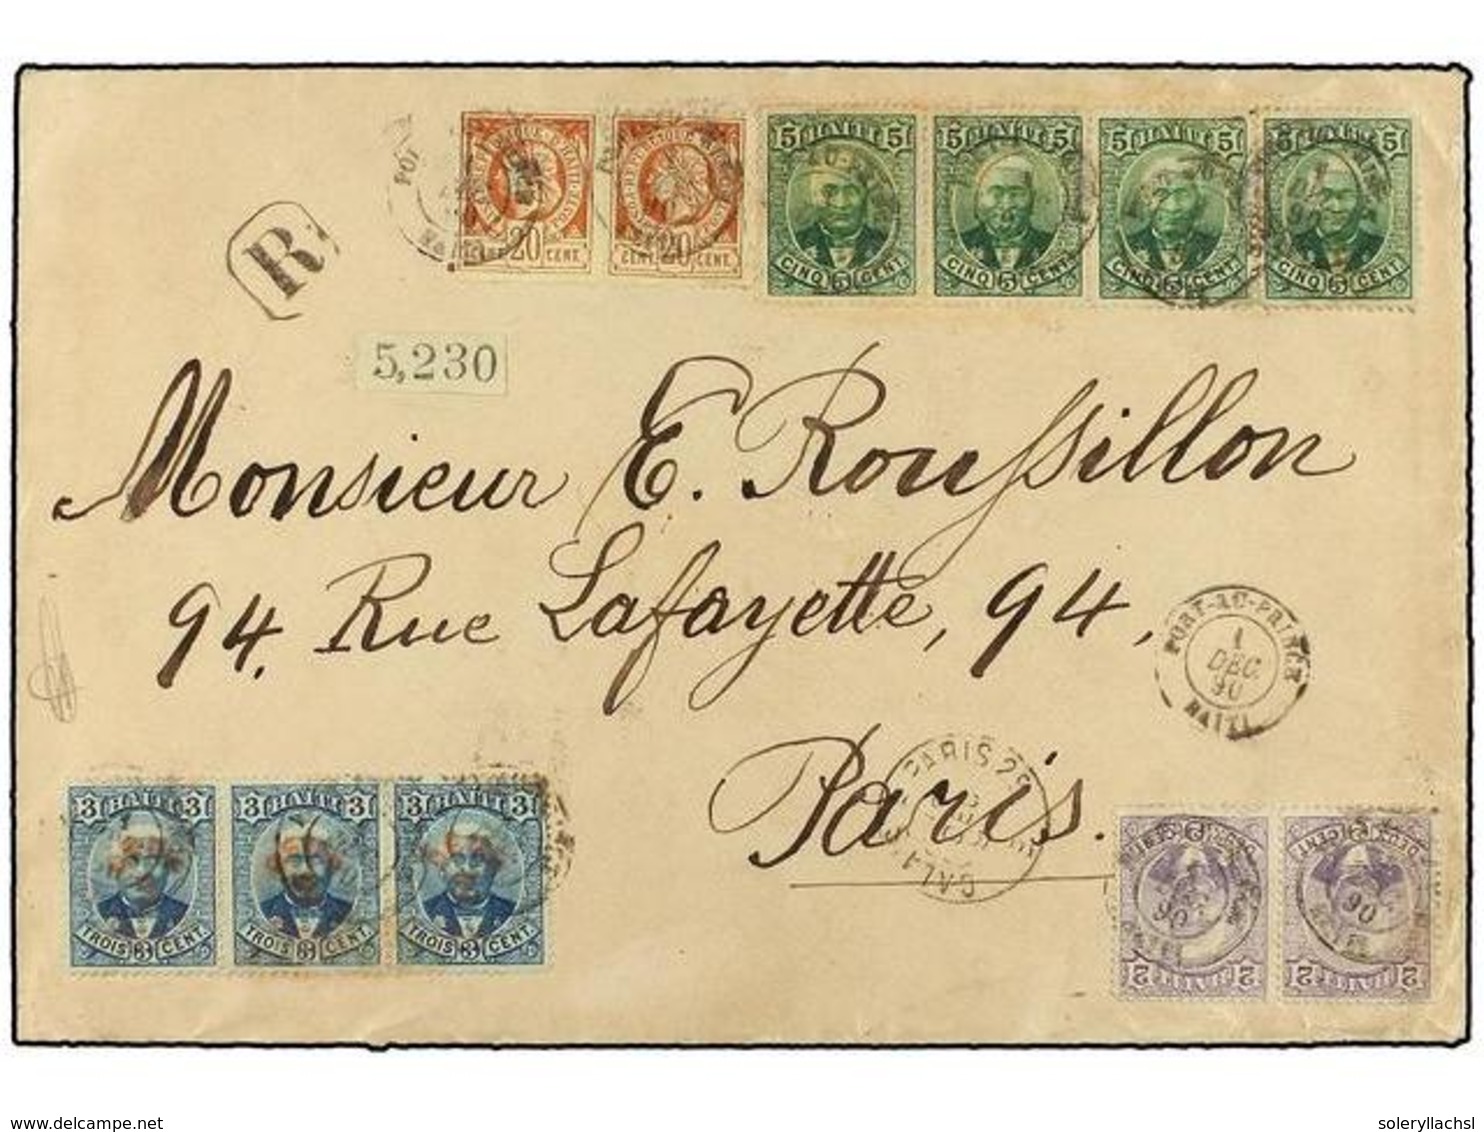 20 CENT. CENT 20 CENT.
5 HAYTI 5 5 HAYTI 5 5 HAYTI 5 5 HAYTI 5
CINQ 5 CENT. CINQ 5 CENT. CINQ 5 CENT. CINQ 5 CENT.
R
5,230
Monsieur E. Roussillon
94, Rue Lafayette, 94,
Paris.
PORT-AU-PRINCE
1
DEC
90
HAITI
PARIS
3 3 3 3 3 3
TROIS 3 CENT. TROIS 3 CENT. TROIS 3 CENT.
DEUX 2 CENT DEUX 2 CENT
90 90
2 2 2 2
www.delcampe.net
soleryllachsl